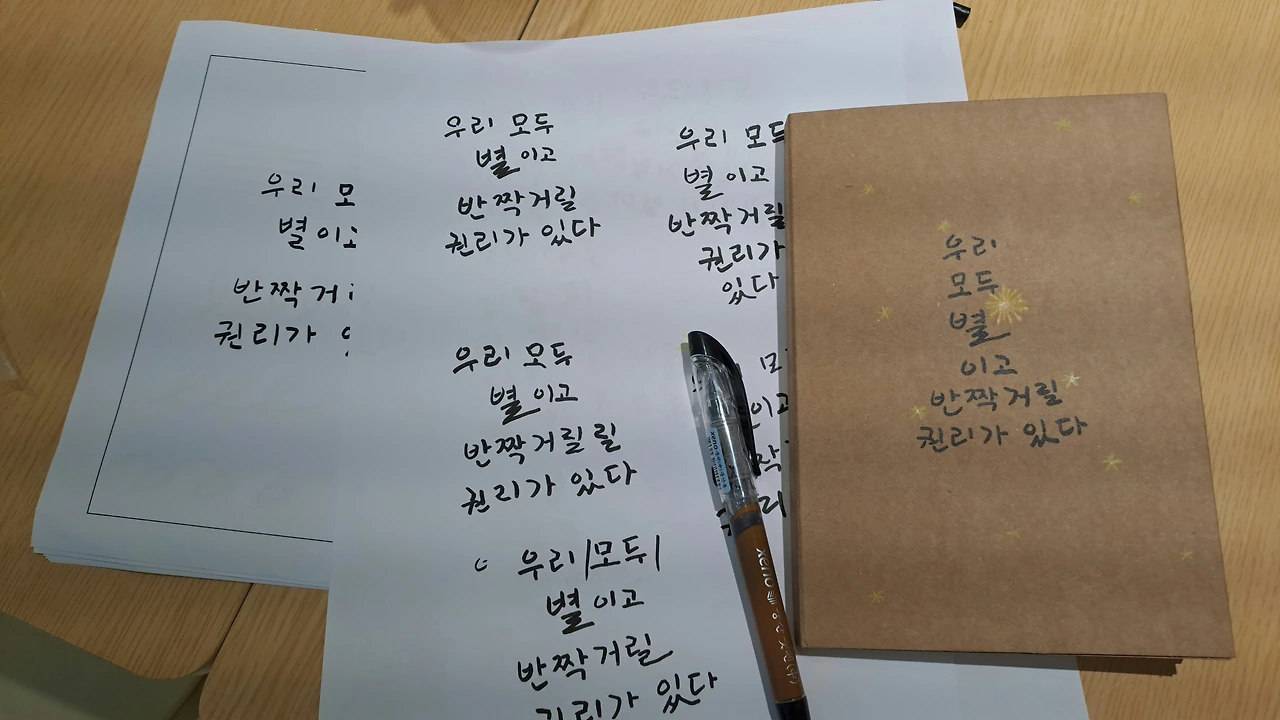 우리 모
별이
반짝거
권리가
우리 모두
별이고
반짝거릴
권리가 있다
우리 모두
별이고
반짝거릴
권리가
있다
우리 모두
별이고
반짝거릴릴
권리가 있다
우리 모두
별이고
반짝거릴
권리가 있다
이고
짝
리
xeno
우리
모두
별
이고
반짝거릴
권리가 있다